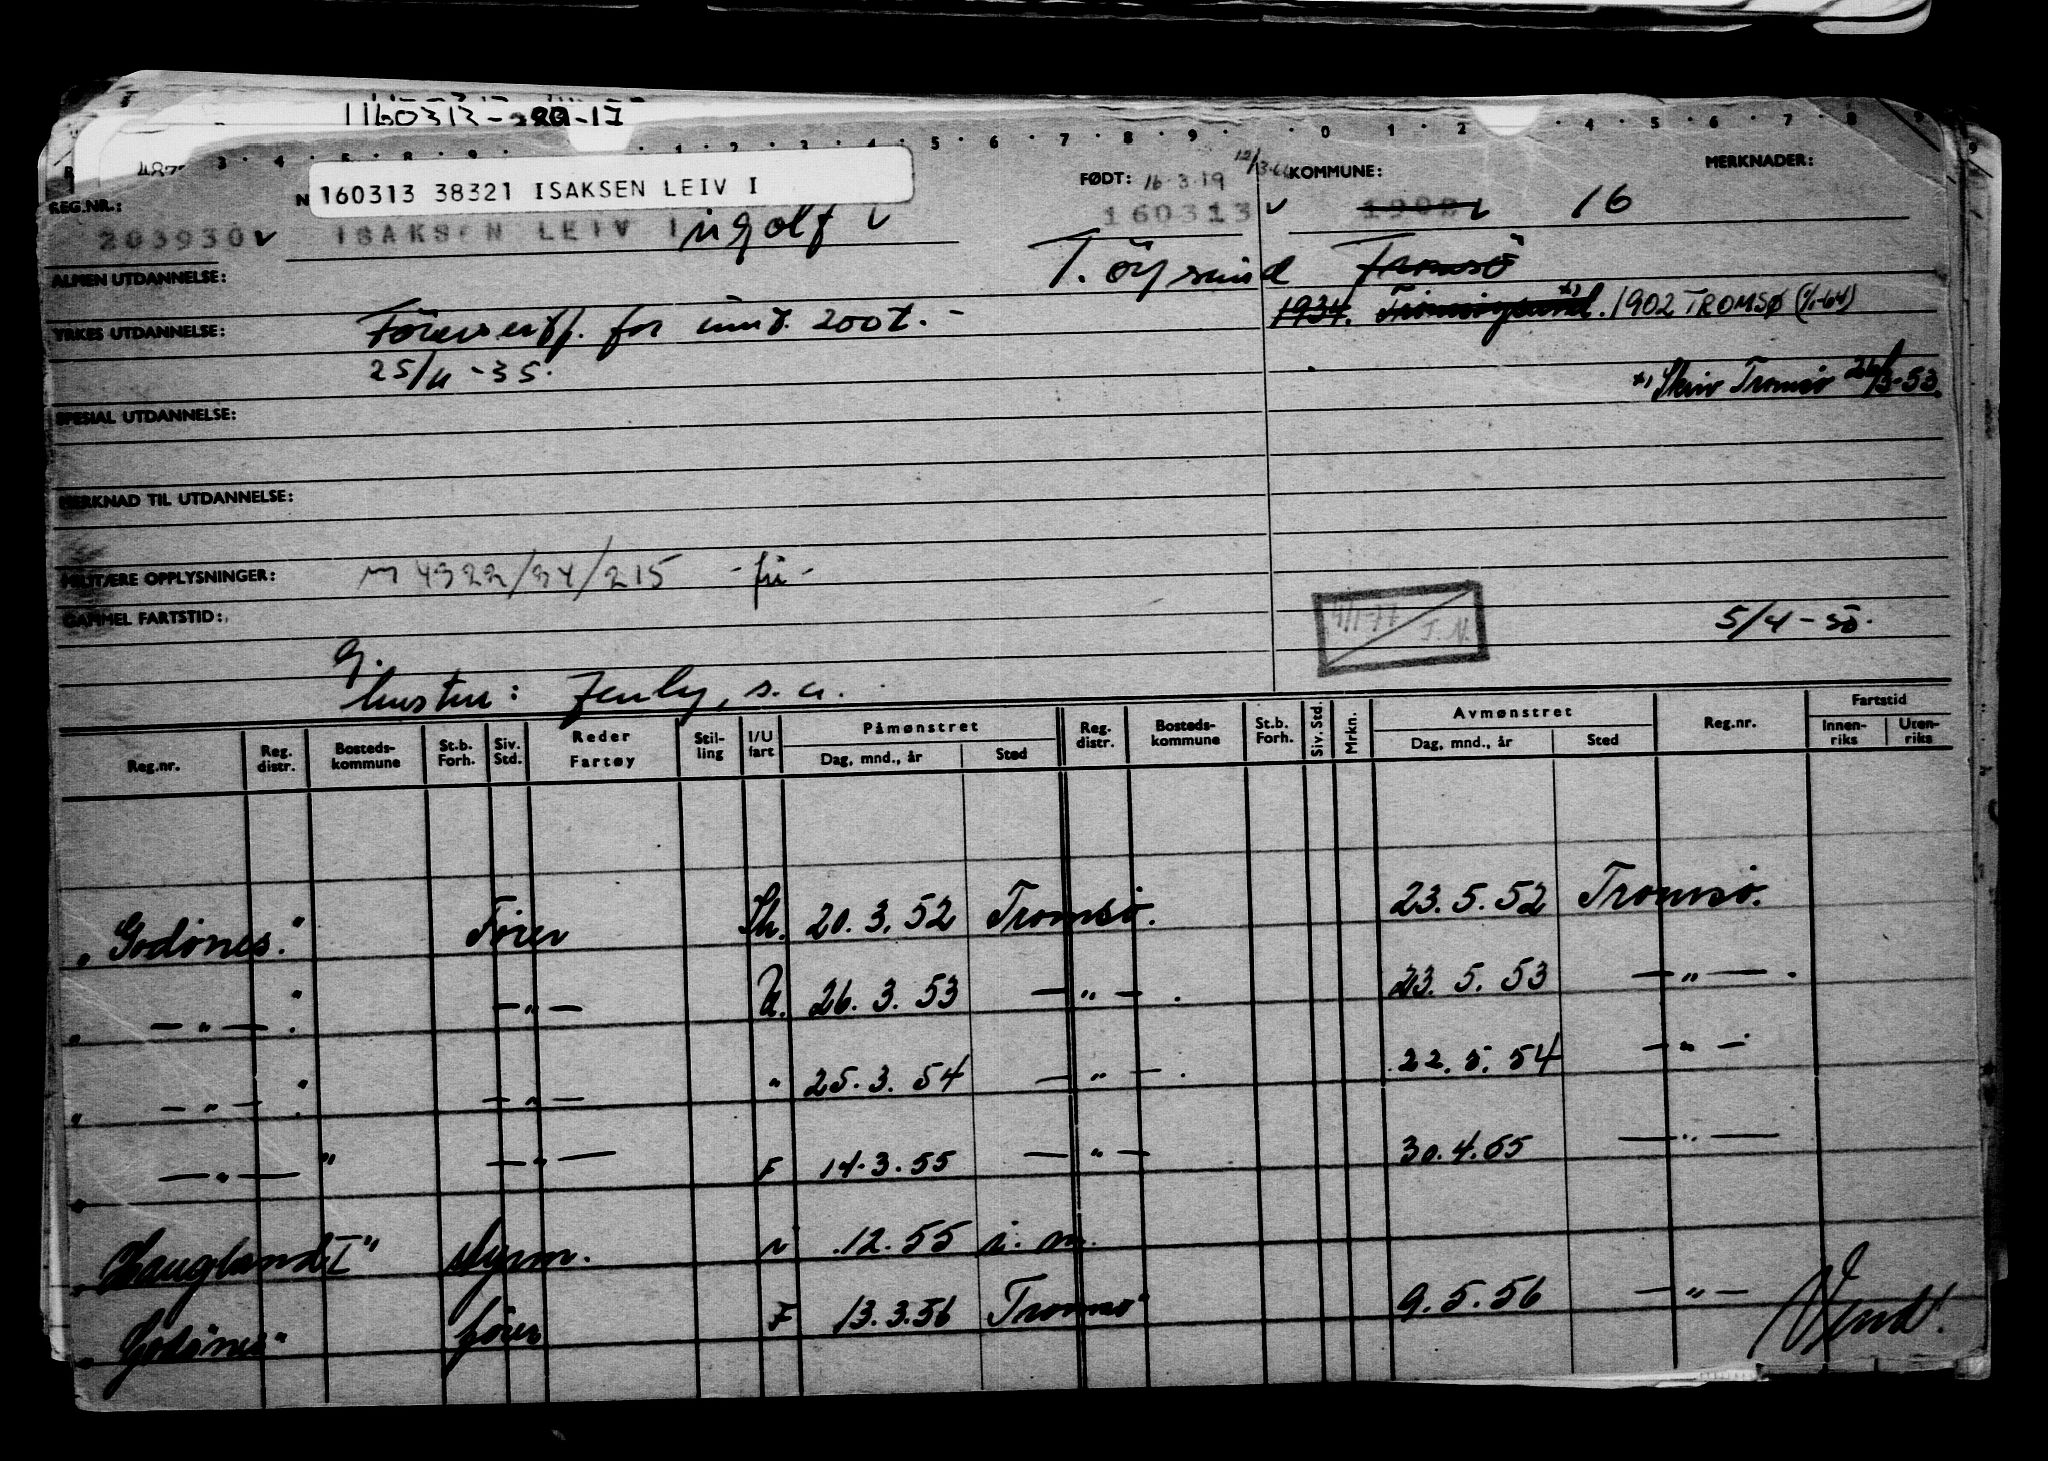 160313-
160313 38321 ISAKSEN LEIV I
REG.NR.: FØDT: 16-3-19 KOMMUNE: MERKNADER:
203930 ISAKSEN LEIV Ingolf 160313 1902 16
T. öysund Tromsö
ALMEN UTDANNELSE:
1934. Tromsøysund. 1902 TROMSØ (1/1-64)
YRKES UTDANNELSE: Försertf. for innt. 200 t. -
25/4 -35.
*) Skriv Tromsø 26/3-53.
SPESIAL UTDANNELSE:
MERKNAD TIL UTDANNELSE:
MILITÆRE OPPLYSNINGER: M 4322/34/215 - fri -
GAMMEL FARTSTID:
4/1-77 T.N. 5/4-50.
g.
hustru: Jenly, s. a.
Reg.nr. Reg. distr. Bosteds-kommune St.b. Forh. Siv. Std. Reder Fartøy Stil-ling I/U fart Påmønstret Dag, mnd., år Sted Reg. distr. Bosteds-kommune St.b. Forh. Siv. Std. Mrkn. Avmønstret Dag, mnd., år Sted Reg.nr. Fartstid Innen-riks Uten-riks
"Godönes." Förer Sh. 20.3.52 Tromsö. 23.5.52 Tromsö.
" — " — ." — " — U. 26.3.53 — " — . 23.5.53 — " — .
" — " — ." — " — " 25.3.54 — " — . 22.5.54 — " —
" — " — " — " — F 14.3.55 — " — 30.4.55 — " —
"Haugland I" styrm. .12.55 i. m.
"Godönes" förer F 13.3.56 Tromsö 9.5.56 — " —
Vend!